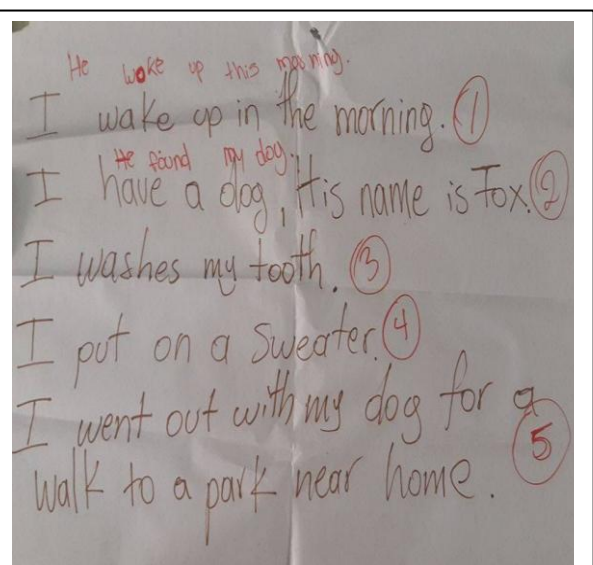 He woke up this morning.
I wake up in the morning. 1
He found my dog.
I have a dog, His name is Fox. 2
I washes my tooth. 3
I put on a Sweater. 4
I went out with my dog for a
walk to a park near home. 5